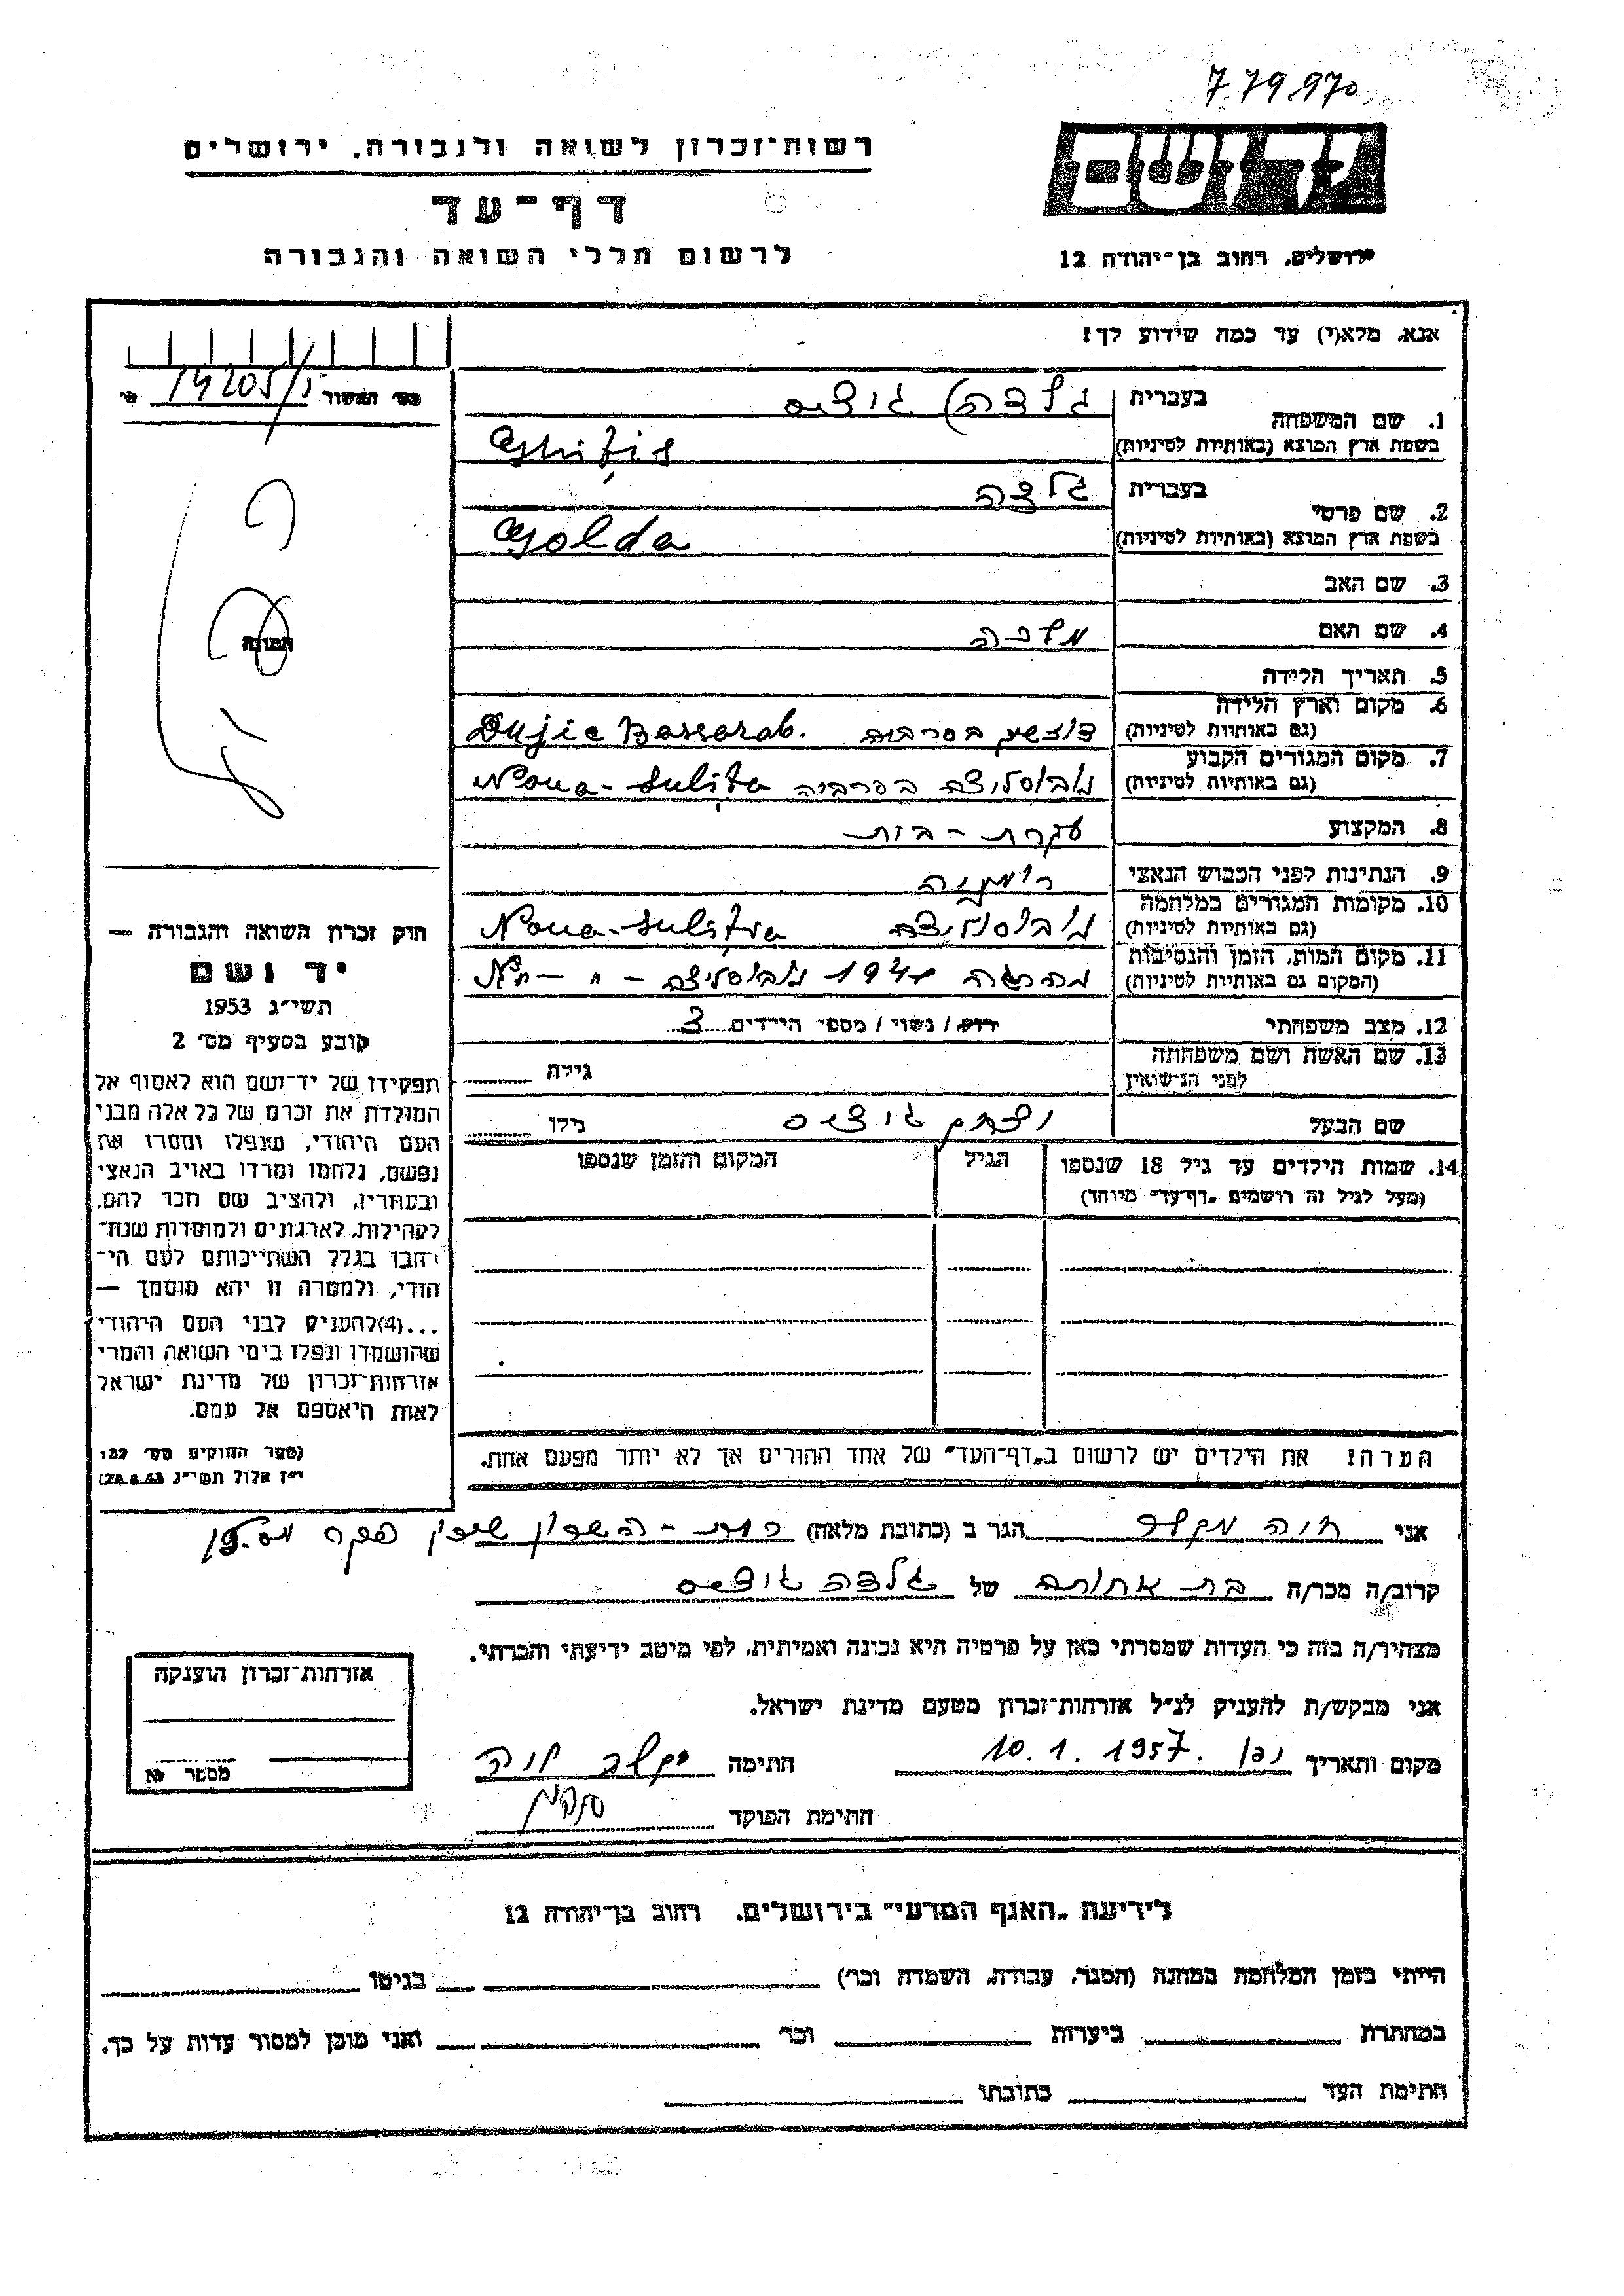 779970
רשות־זכרון לשואה ולגבורה, ירושלים
דף־עד
לרשום חללי השואה והגבורה
ירושלים, רחוב בן־יהודה 12
אנא, מלא(י) עד כמה שידוע לך!
14205/
1. שם המשפחה בעברית
בשפת ארץ המוצא (באותיות לטיניות) Ghițis
2. שם פרטי בעברית גלדה
בשפת ארץ המוצא (באותיות לטיניות) Golda
3. שם האב
4. שם האם מלכה
5. תאריך הלידה
6. מקום וארץ הלידה
(גם באותיות לטיניות) בסרביה Dujie Bassarab.
7. מקום המגורים הקבוע
(גם באותיות לטיניות) נובוסליצה בסרביה Noua-Sulița
8. המקצוע עקרת-בית
9. הנתינות לפני הכבוש הנאצי רומניה
10. מקומות המגורים במלחמה
(גם באותיות לטיניות) נובוסליצה Noua-Sulița
11. מקום המות, הזמן והנסיבות
(המקום גם באותיות לטיניות) נהרגה 1941 נובוסליצה
12. מצב משפחתי רוק/ נשוי/ מספר הילדים 3
13. שם האשה ושם משפחתה
לפני הנישואין גילה
שם הבעל יצחק גיציס גילו
14. שמות הילדים עד גיל 18 שנספו הגיל המקום והזמן שנספו
(מעל לגיל זה רושמים „דף־עד" מיוחד)
הערה! את הילדים יש לרשום ב„דף־העד" של אחד ההורים אך לא יותר מפעם אחת.
התמונה
חוק זכרון השואה והגבורה —
יד ושם
תשי"ג 1953
קובע בסעיף מס׳ 2
תפקידו של יד־ושם הוא לאסוף אל
המולדת את זכרם של כל אלה מבני
העם היהודי, שנפלו ומסרו את
נפשם, נלחמו ומרדו באויב הנאצי
ובעוזריו, ולהציב שם וזכר להם,
לקהילות, לארגונים ולמוסדות שנח־
רבו בגלל השתייכותם לעם הי־
הודי, ולמטרה זו יהא מוסמך —
...(4)להעניק לבני העם היהודי
שהושמדו ונפלו בימי השואה והמרי
אזרחות־זכרון של מדינת ישראל
לאות היאספם אל עמם.
(ספר החוקים מס׳ 132
י"ז אלול תשי"ג 28.8.53)
אני חיה הגר ב (כתובת מלאה) השרון שיכון
קרוב/ה מכר/ה בת אחותה של גלדה גיציס
מצהיר/ה בזה כי העדות שמסרתי כאן על פרטיה היא נכונה ואמיתית, לפי מיטב ידיעתי והכרתי.
אני מבקש/ת להעניק לנ"ל אזרחות־זכרון מטעם מדינת ישראל.
מקום ותאריך 10.1.1957 חתימה חיה
חתימת הפוקד
אזרחות־זכרון הוענקה
מספר
לידיעת „האגף המדעי" בירושלים, רחוב בן־יהודה 12
הייתי בזמן המלחמה במחנה (הסגר, עבודה, השמדה וכו׳) בגיטו
במחתרת ביערות וכו׳ ואני מוכן למסור עדות על כך.
חתימת העד כתובתו